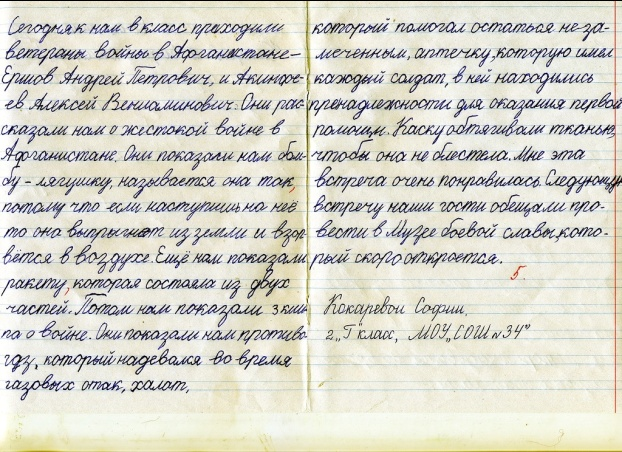 Сегодня к нам в класс приходили
ветераны войны в Афганистане –
Ершов Андрей Петрович, и Акинфе-
ев Алексей Вениаминович. Они рас-
сказали нам о жестокой войне в
Афганистане. Они показали нам бом-
бу – лягушку, называется она так,
потому что если наступишь на неё
то она выпрыгнет из земли и взор-
вётся в воздухе. Ещё нам показали
ракету, которая состояла из двух
частей. Потом нам показали 3 кли-
па о войне. Они показали нам противо-
газ, который надевался во время
газовых атак, халат,
который помогал остаться неза-
меченным, аптечку, которую имел
каждый солдат, в ней находились
пренадлежности для оказания первой
помощи. Каску обтягивали тканью,
чтобы она не блестела. Мне эта
встреча очень понравилась. Следующую
встречу наши гости обещали про-
вести в Музее боевой славы, кото-
рый скоро откроется.
5.
Кокаревой Софии.
2 „Г" класс, МОУ „СОШ №34"